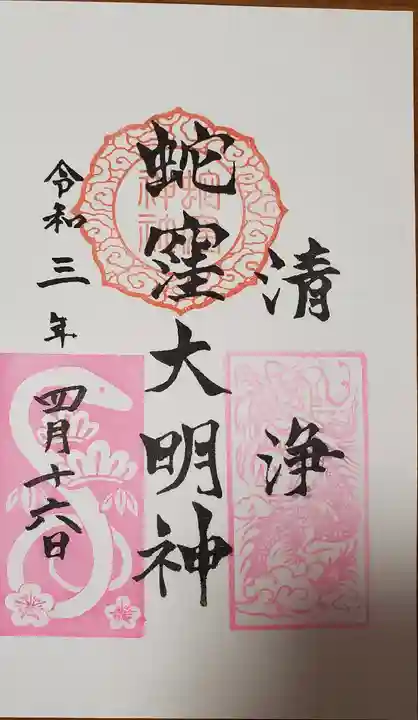 清浄
蛇窪大明神
令和三年四月十六日